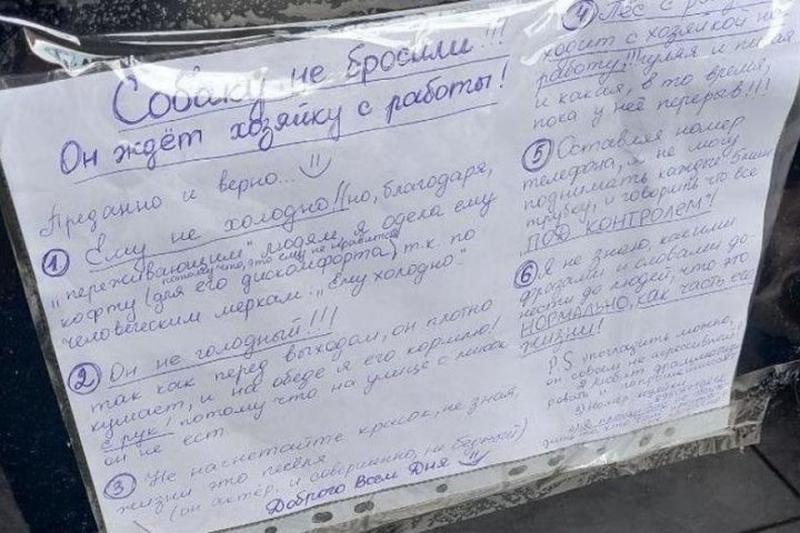 Собаку не бросили!!!
Он ждёт хозяйку с работы!
Преданно и верно...
1 Ему не холодно!! но, благодаря,
"переживающим" людям, я одела ему
потому что, это ему не нравится
кофту (для его дискомфорта), т.к. по
человеческим меркам: "Ему холодно"
2 Он не голодный!!!
так как перед выходом, он плотно
кушает, и на обеде я его кормлю!
с рук! потому что на улице с миски
он не ест
3 Не насчетайте красок, не зная,
жизни это пёселя
(он актёр, и совершенно, не бедный)
Доброго Всем Дня
4 Пёс с
ходит с хозяйкой на
работу!!! гуляя и
и какая, в то время,
пока у неё перерыв!!!
5 Оставляя номер
телефона, я не могу
поднимать каждые
трубку, и говорить что все
ПОД КОНТРОЛЕМ"!
6 Я не знаю, какими
фразами и словами до-
нести до людей, что это
НОРМАЛЬНО, как часть его
жизни!
P.S. погладить можно,
он совсем не агрессивный